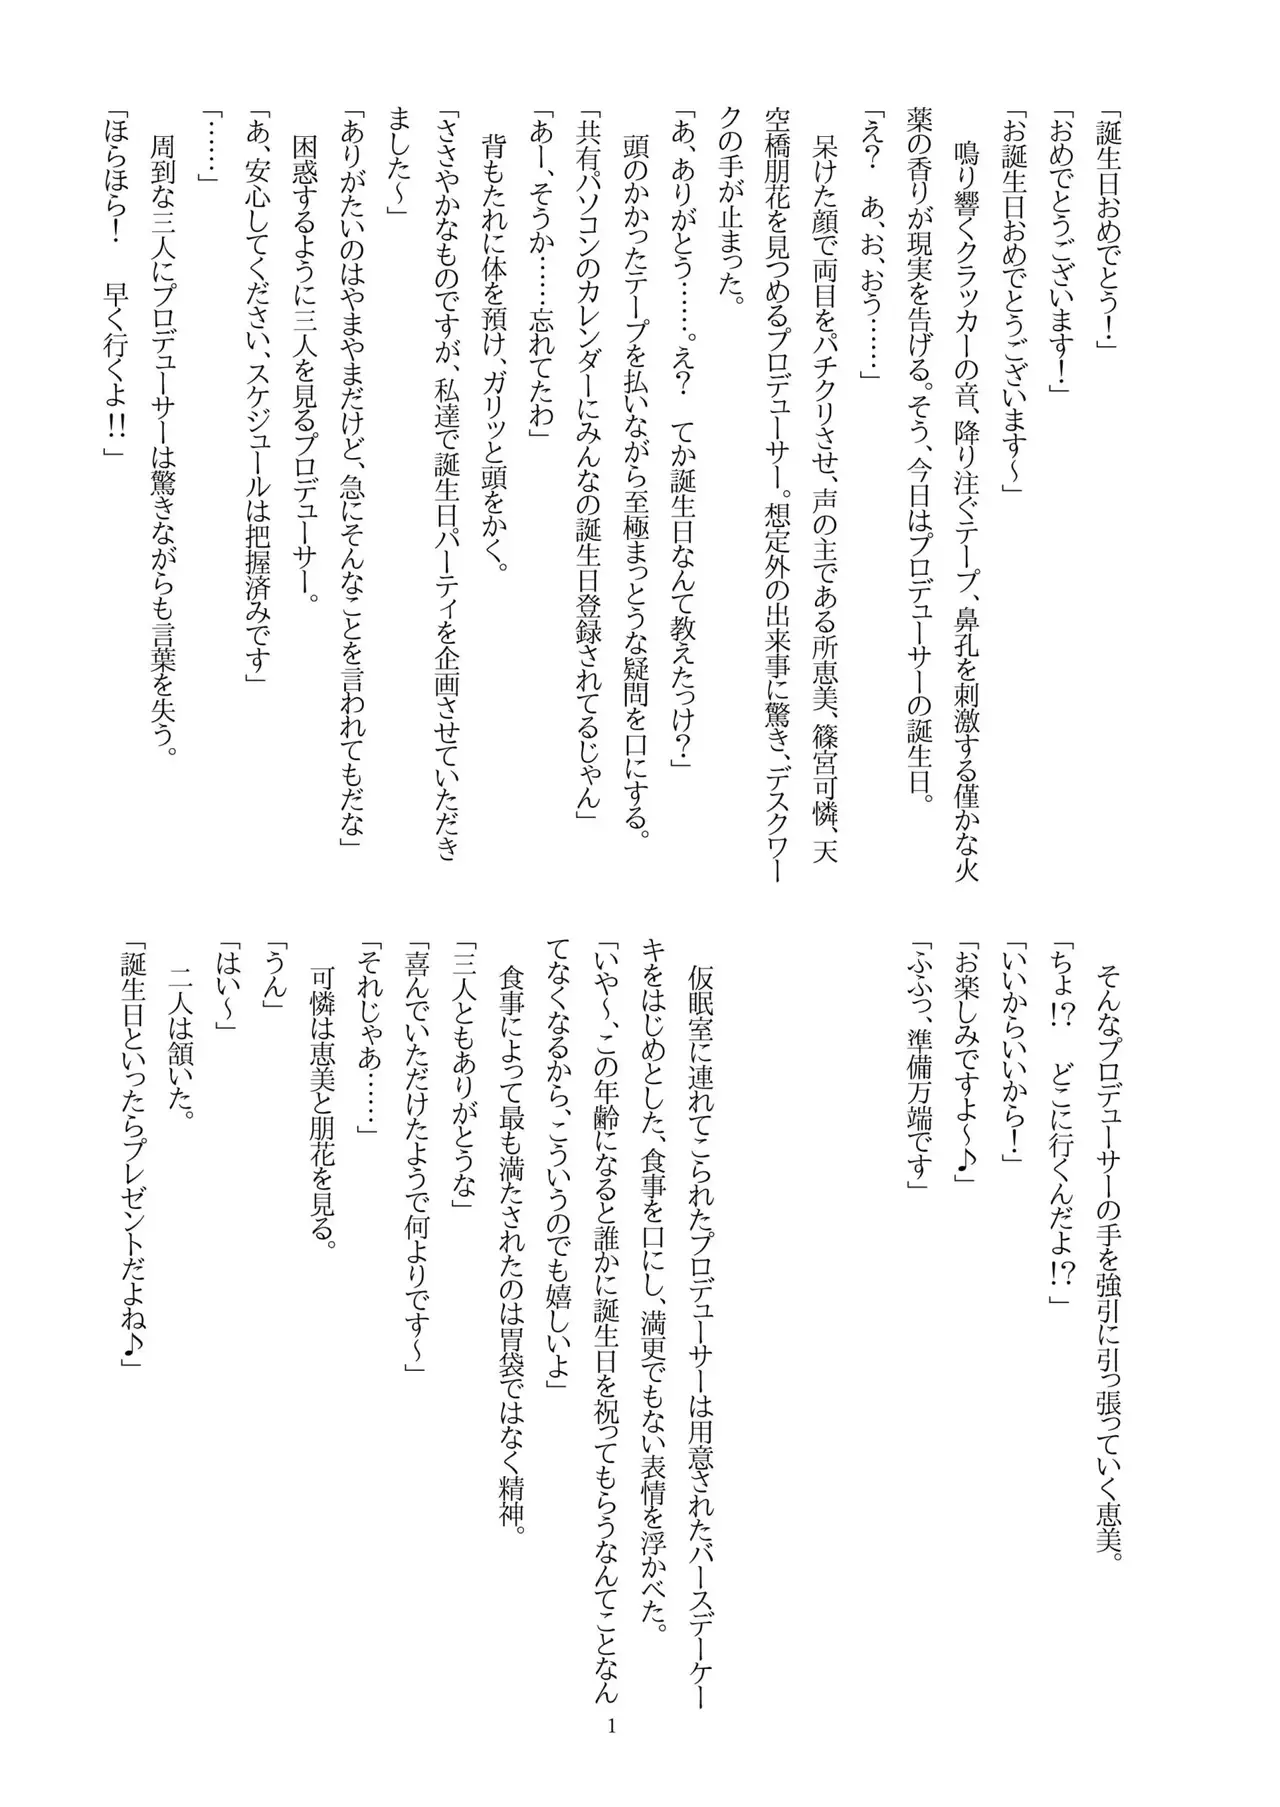 「誕生日おめでとう！」
「おめでとうございます！」
「お誕生日おめでとうございます〜」
　鳴り響くクラッカーの音、降り注ぐテープ、鼻孔を刺激する僅かな火
薬の香りが現実を告げる。そう、今日はプロデューサーの誕生日。
「え？　あ、お、おう……」
　呆けた顔で両目をパチクリさせ、声の主である所恵美、篠宮可憐、天
空橋朋花を見つめるプロデューサー。想定外の出来事に驚き、デスクワー
クの手が止まった。
「あ、ありがとう……。え？　てか誕生日なんて教えたっけ？」
　頭のかかったテープを払いながら至極まっとうな疑問を口にする。
「共有パソコンのカレンダーにみんなの誕生日登録されてるじゃん」
「あー、そうか……忘れてたわ」
　背もたれに体を預け、ガリッと頭をかく。
「ささやかなものですが、私達で誕生日パーティを企画させていただき
ました〜」
「ありがたいのはやまやまだけど、急にそんなことを言われてもだな」
　困惑するように三人を見るプロデューサー。
「あ、安心してください、スケジュールは把握済みです」
「……」
　周到な三人にプロデューサーは驚きながらも言葉を失う。
「ほらほら！　早く行くよ!!」
　そんなプロデューサーの手を強引に引っ張っていく恵美。
「ちょ!?　どこに行くんだよ!?」
「いいからいいから！」
「お楽しみですよ〜♪」
「ふふっ、準備万端です」
　仮眠室に連れてこられたプロデューサーは用意されたバースデーケー
キをはじめとした、食事を口にし、満更でもない表情を浮かべた。
「いや〜、この年齢になると誰かに誕生日を祝ってもらうなんてことなん
てなくなるから、こういうのでも嬉しいよ」
　食事によって最も満たされたのは胃袋ではなく精神。
「三人ともありがとうな」
「喜んでいただけたようで何よりです〜」
「それじゃあ……」
　可憐は恵美と朋花を見る。
「うん」
「はい〜」
　二人は頷いた。
「誕生日といったらプレゼントだよね♪」
1